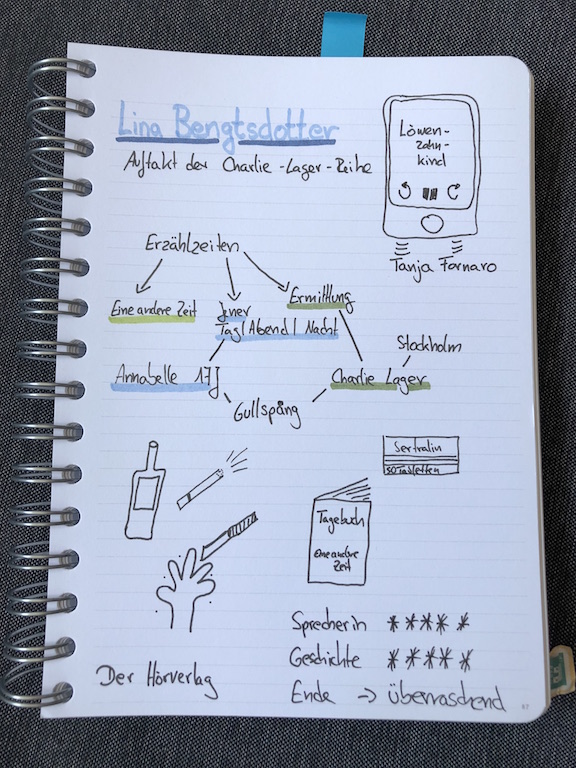 Lina Bengtsdotter
Auftakt der Charlie-Lager-Reihe
Löwen-
zahn-
kind
Tanja Fornaro
Erzählzeiten
Eine andere Zeit
Jener
Tag/Abend/Nacht
Ermittlung
Stockholm
Annabelle 17J
Charlie Lager
Gullspång
Sertralin
50 Tabletten
Tagebuch
eine andere
Zeit
Sprecherin *****
Geschichte *****
Ende -> überraschend
Der Hörverlag